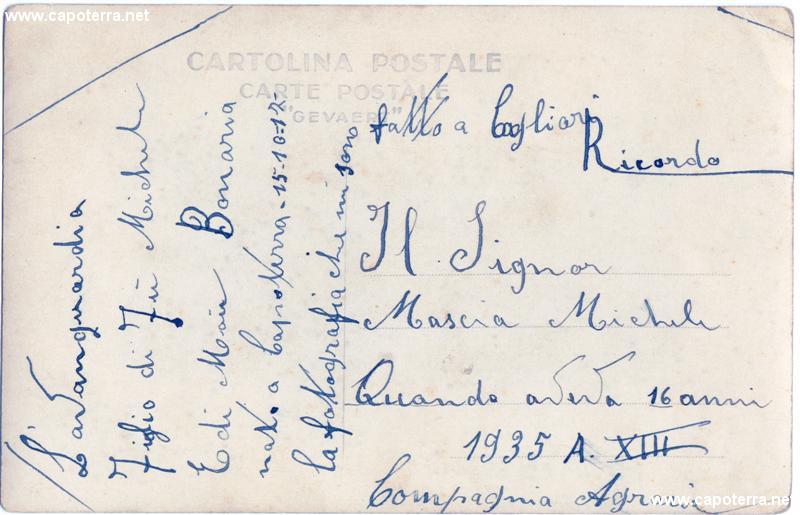 www.capoterra.net
www.capoterra.net
CARTOLINA POSTALE
CARTE POSTALE
"GEVAERT"
L'avanguardia
Figio di Fù Michele
E di Bonaria
nato a Capoterra 15-10-12-
la fotografia che mi sono
fatto a Cagliari
Ricordo
Il Signor
Mascia Michele
Quando aveva 16 anni
1935 A. XIII
Compagnia
www.capoterra.net